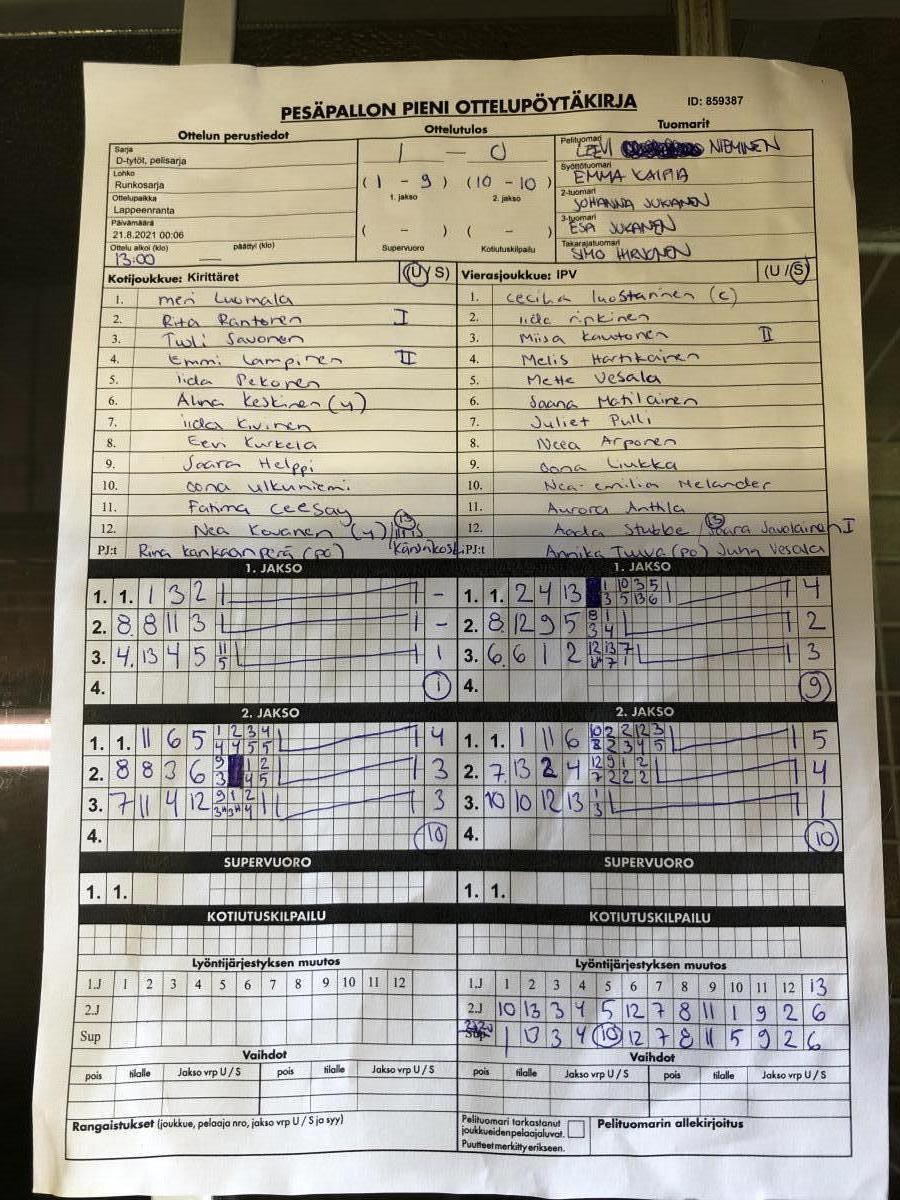 PESÄPALLON PIENI OTTELUPÖYTÄKIRJA ID: 859387
Ottelun perustiedot Ottelutulos Tuomarit
Sarja
D-tytöt, pelisarja
Lohko
Runkosarja
Ottelupaikka
Lappeenranta
Päivämäärä
21.8.2021 00:06
Ottelu alkoi (klo) päättyi (klo)
13:00 —
1 — 0
(1 - 9) (10 - 10)
1. jakso 2. jakso
( - ) ( - )
Supervuoro Kotiutuskilpailu
Pelituomari
LEEVI NIEMINEN
Syöttötuomari
EMMA KAIPIA
2-tuomari
JOHANNA JUKANEN
3-tuomari
ESA JUKANEN
Takarajatuomari
SIMO HIRVONEN
Kotijoukkue: Kirittäret (U/S)
1. Meri Luomala
2. Rita Rantonen I
3. Tuuli Savonen
4. Emmi Lampinen II
5. Iida Pekonen
6. Alma Keskinen (y)
7. iida Kivinen
8. Eevi Kurkela
9. Saara Helppi
10. oona ulkuniemi
11. Fatima Ceesay
12. Nea Kovanen (y) / 13
PJ:t Rina Kankaanperä (po)
Vierasjoukkue: IPV (U/S)
1. cecilia luostarinen (c)
2. iida ripkinen
3. Miisa Kautonen II
4. Melis Hartikainen
5. Mette Vesala
6. Saana Matilainen
7. Juliet Pulli
8. Neea Arponen
9. oona Liukka
10. Nea-emilia Melander
11. Aurora Anttila
12. Aada Stubbe / 13 Saara Savolainen I
PJ:t Annika Turva (po) Juha Vesala
1. JAKSO
1. 1. 1 3 2 -
2. 8. 8 11 3 -
3. 4. 13 4 5 11 5 1
4. 1
1. JAKSO
1. 1. 2 4 13 1 10 3 5 4
3 5 13 6
2. 8. 12 9 5 8 1 2
3 4
3. 6. 6 1 2 12 13 7 3
4. 9
2. JAKSO
1. 1. 11 6 5 1 2 3 4 4
4 4 5 5
2. 8 8 3 6 9 1 2 3
3 4 5
3. 7 11 4 12 9 1 2 3
4. 10
2. JAKSO
1. 1. 1 11 6 10 2 2 12 3 5
8 2 3 4 5
2. 7. 13 2 4 12 9 1 2 4
7 2 2 2
3. 10 10 12 13 1 3 1
4. 10
SUPERVUORO SUPERVUORO
1. 1. 1. 1.
KOTIUTUSKILPAILU KOTIUTUSKILPAILU
Lyöntijärjestyksen muutos
1.J 1 2 3 4 5 6 7 8 9 10 11 12
2.J
Sup
Lyöntijärjestyksen muutos
1.J 1 2 3 4 5 6 7 8 9 10 11 12 13
2.J 10 13 3 4 5 12 7 8 11 1 9 2 6
Sup 1 13 3 4 10 12 7 8 11 5 9 2 6
Vaihdot Vaihdot
pois tilalle Jakso vrp U / S pois tilalle Jakso vrp U / S
pois tilalle Jakso vrp U / S pois tilalle Jakso vrp U / S
Rangaistukset (joukkue, pelaaja nro, jakso vrp U / S ja syy)
Pelituomari tarkastanut
joukkueiden pelaajaluvat.
Puutteet merkitty erikseen.
Pelituomarin allekirjoitus